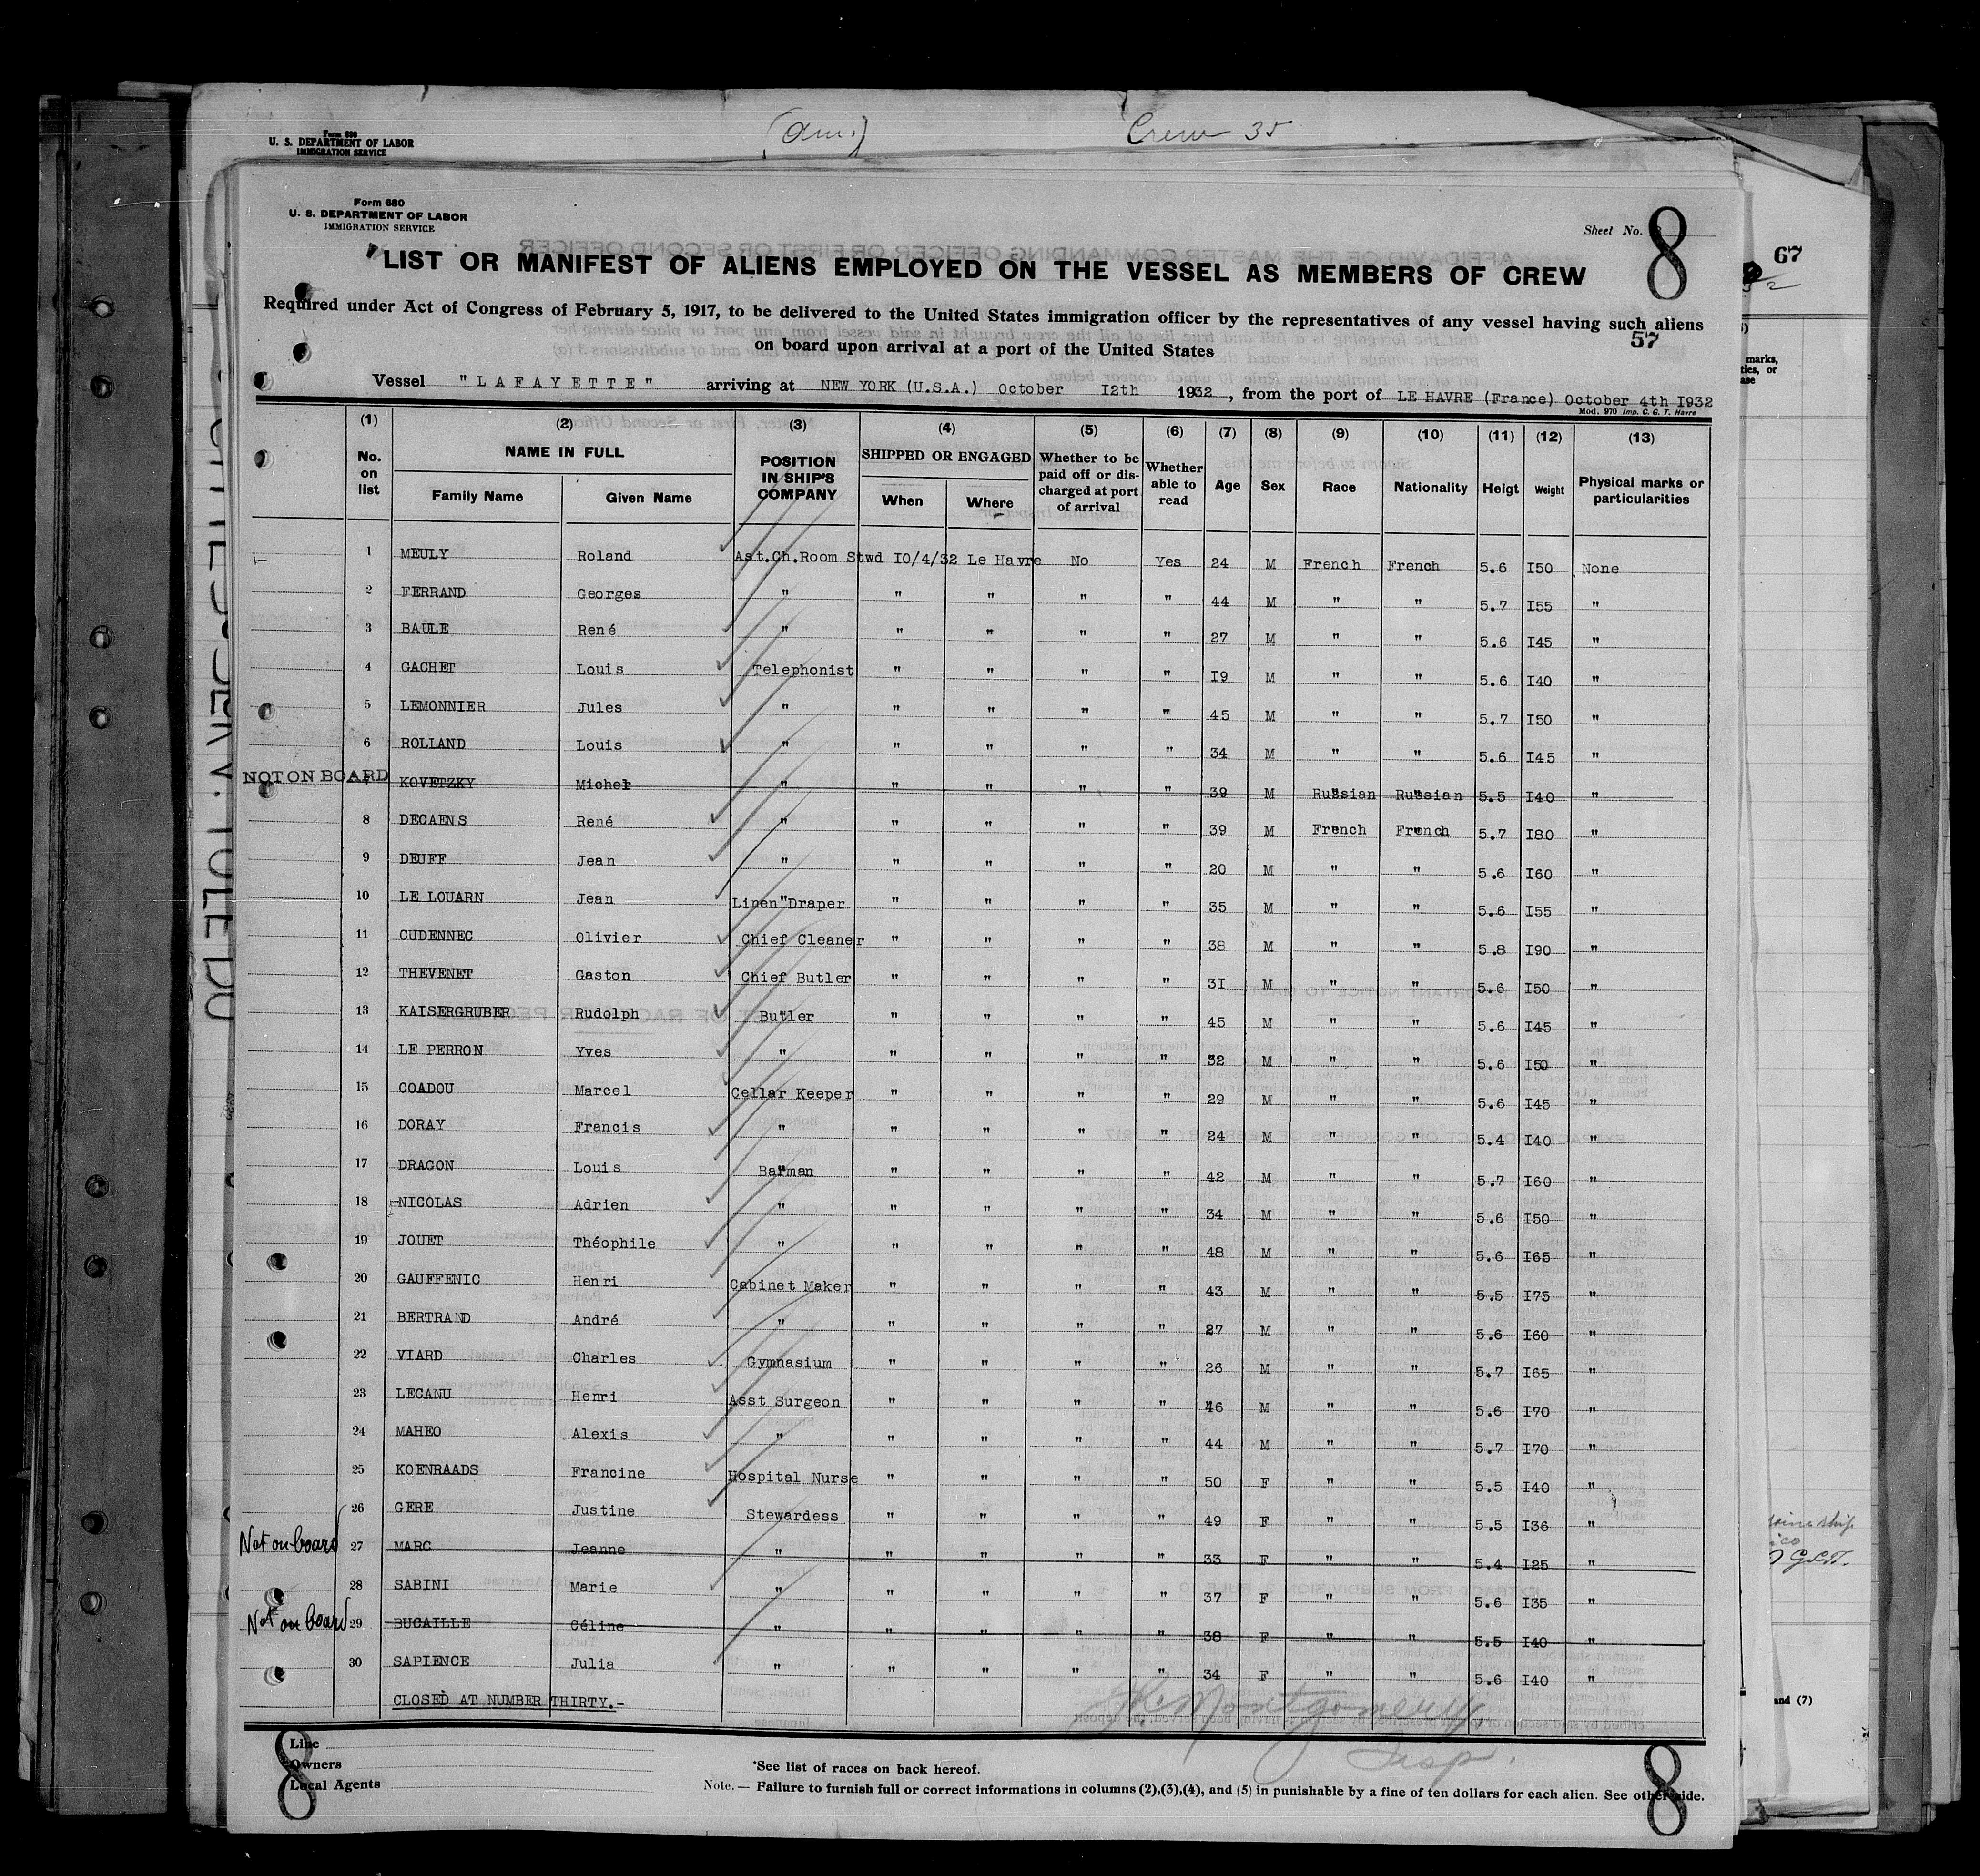 (am.) Crew 35
Form 680
U. S. DEPARTMENT OF LABOR
IMMIGRATION SERVICE
Form 680
U. S. DEPARTMENT OF LABOR
IMMIGRATION SERVICE
Sheet No. 8
67
LIST OR MANIFEST OF ALIENS EMPLOYED ON THE VESSEL AS MEMBERS OF CREW
Required under Act of Congress of February 5, 1917, to be delivered to the United States immigration officer by the representatives of any vessel having such aliens
on board upon arrival at a port of the United States
57
Vessel "LAFAYETTE" arriving at NEW YORK (U.S.A.) October I2th 1932, from the port of LE HAVRE (France) October 4th I932
Mod. 970 Imp. C. G. T. Havre
(1) (2) (3) (4) (5) (6) (7) (8) (9) (10) (11) (12) (13)
No. on list NAME IN FULL Family Name Given Name POSITION IN SHIP'S COMPANY SHIPPED OR ENGAGED When Where Whether to be paid off or discharged at port of arrival Whether able to read Age Sex Race Nationality Heigt Weight Physical marks or particularities
1 MEULY Roland Ast.Ch.Room Stwd I0/4/32 Le Havre No Yes 24 M French French 5.6 I50 None
2 FERRAND Georges " " " " " 44 M " " 5.7 I55 "
3 BAULE René " " " " " 27 M " " 5.6 I45 "
4 GACHET Louis Telephonist " " " " I9 M " " 5.6 I40 "
5 LEMONNIER Jules " " " " " 45 M " " 5.7 I50 "
6 ROLLAND Louis " " " " " 34 M " " 5.6 I45 "
NOT ON BOARD 7 KOVETZKY Michel " " " " " 39 M Russian Russian 5.5 I40 "
8 DECAENS René " " " " " 39 M French French 5.7 I80 "
9 DEUFF Jean " " " " " 20 M " " 5.6 I60 "
10 LE LOUARN Jean Linen"Draper " " " " 35 M " " 5.6 I55 "
11 CUDENNEC Olivier Chief Cleaner " " " " 38 M " " 5.8 I90 "
12 THEVENET Gaston Chief Butler " " " " 3I M " " 5.6 I50 "
13 KAISERGRUBER Rudolph Butler " " " " 45 M " " 5.6 I45 "
14 LE PERRON Yves " " " " " 32 M " " 5.6 I50 "
15 COADOU Marcel Cellar Keeper " " " " 29 M " " 5.6 I45 "
16 DORAY Francis " " " " " 24 M " " 5.4 I40 "
17 DRAGON Louis Barman " " " " 42 M " " 5.7 I60 "
18 NICOLAS Adrien " " " " " 34 M " " 5.6 I50 "
19 JOUET Théophile " " " " " 48 M " " 5.6 I65 "
20 GAUFFENIC Henri Cabinet Maker " " " " 43 M " " 5.5 I75 "
21 BERTRAND André " " " " " 27 M " " 5.6 I60 "
22 VIARD Charles Gymnasium " " " " 26 M " " 5.7 I65 "
23 LECANU Henri Asst Surgeon " " " " 46 M " " 5.6 I70 "
24 MAHEO Alexis " " " " " 44 M " " 5.7 I70 "
25 KOENRAADS Francine Hospital Nurse " " " " 50 F " " 5.5 I40 "
26 GERE Justine Stewardess " " " " 49 F " " 5.5 I36 "
Not on board 27 MARC Jeanne " " " " " 33 F " " 5.4 I25 "
28 SABINI Marie " " " " " 37 F " " 5.6 I35 "
Not on board 29 BUCAILLE Céline " " " " " 38 F " " 5.5 I40 "
30 SAPIENCE Julia " " " " " 34 F " " 5.6 I40 "
CLOSED AT NUMBER THIRTY.-
Montgomery
Insp.
Line
Owners
Local Agents
8
*See list of races on back hereof.
Note.— Failure to furnish full or correct informations in columns (2),(3),(4), and (5) in punishable by a fine of ten dollars for each alien. See other side.
8
marks,
and (7)